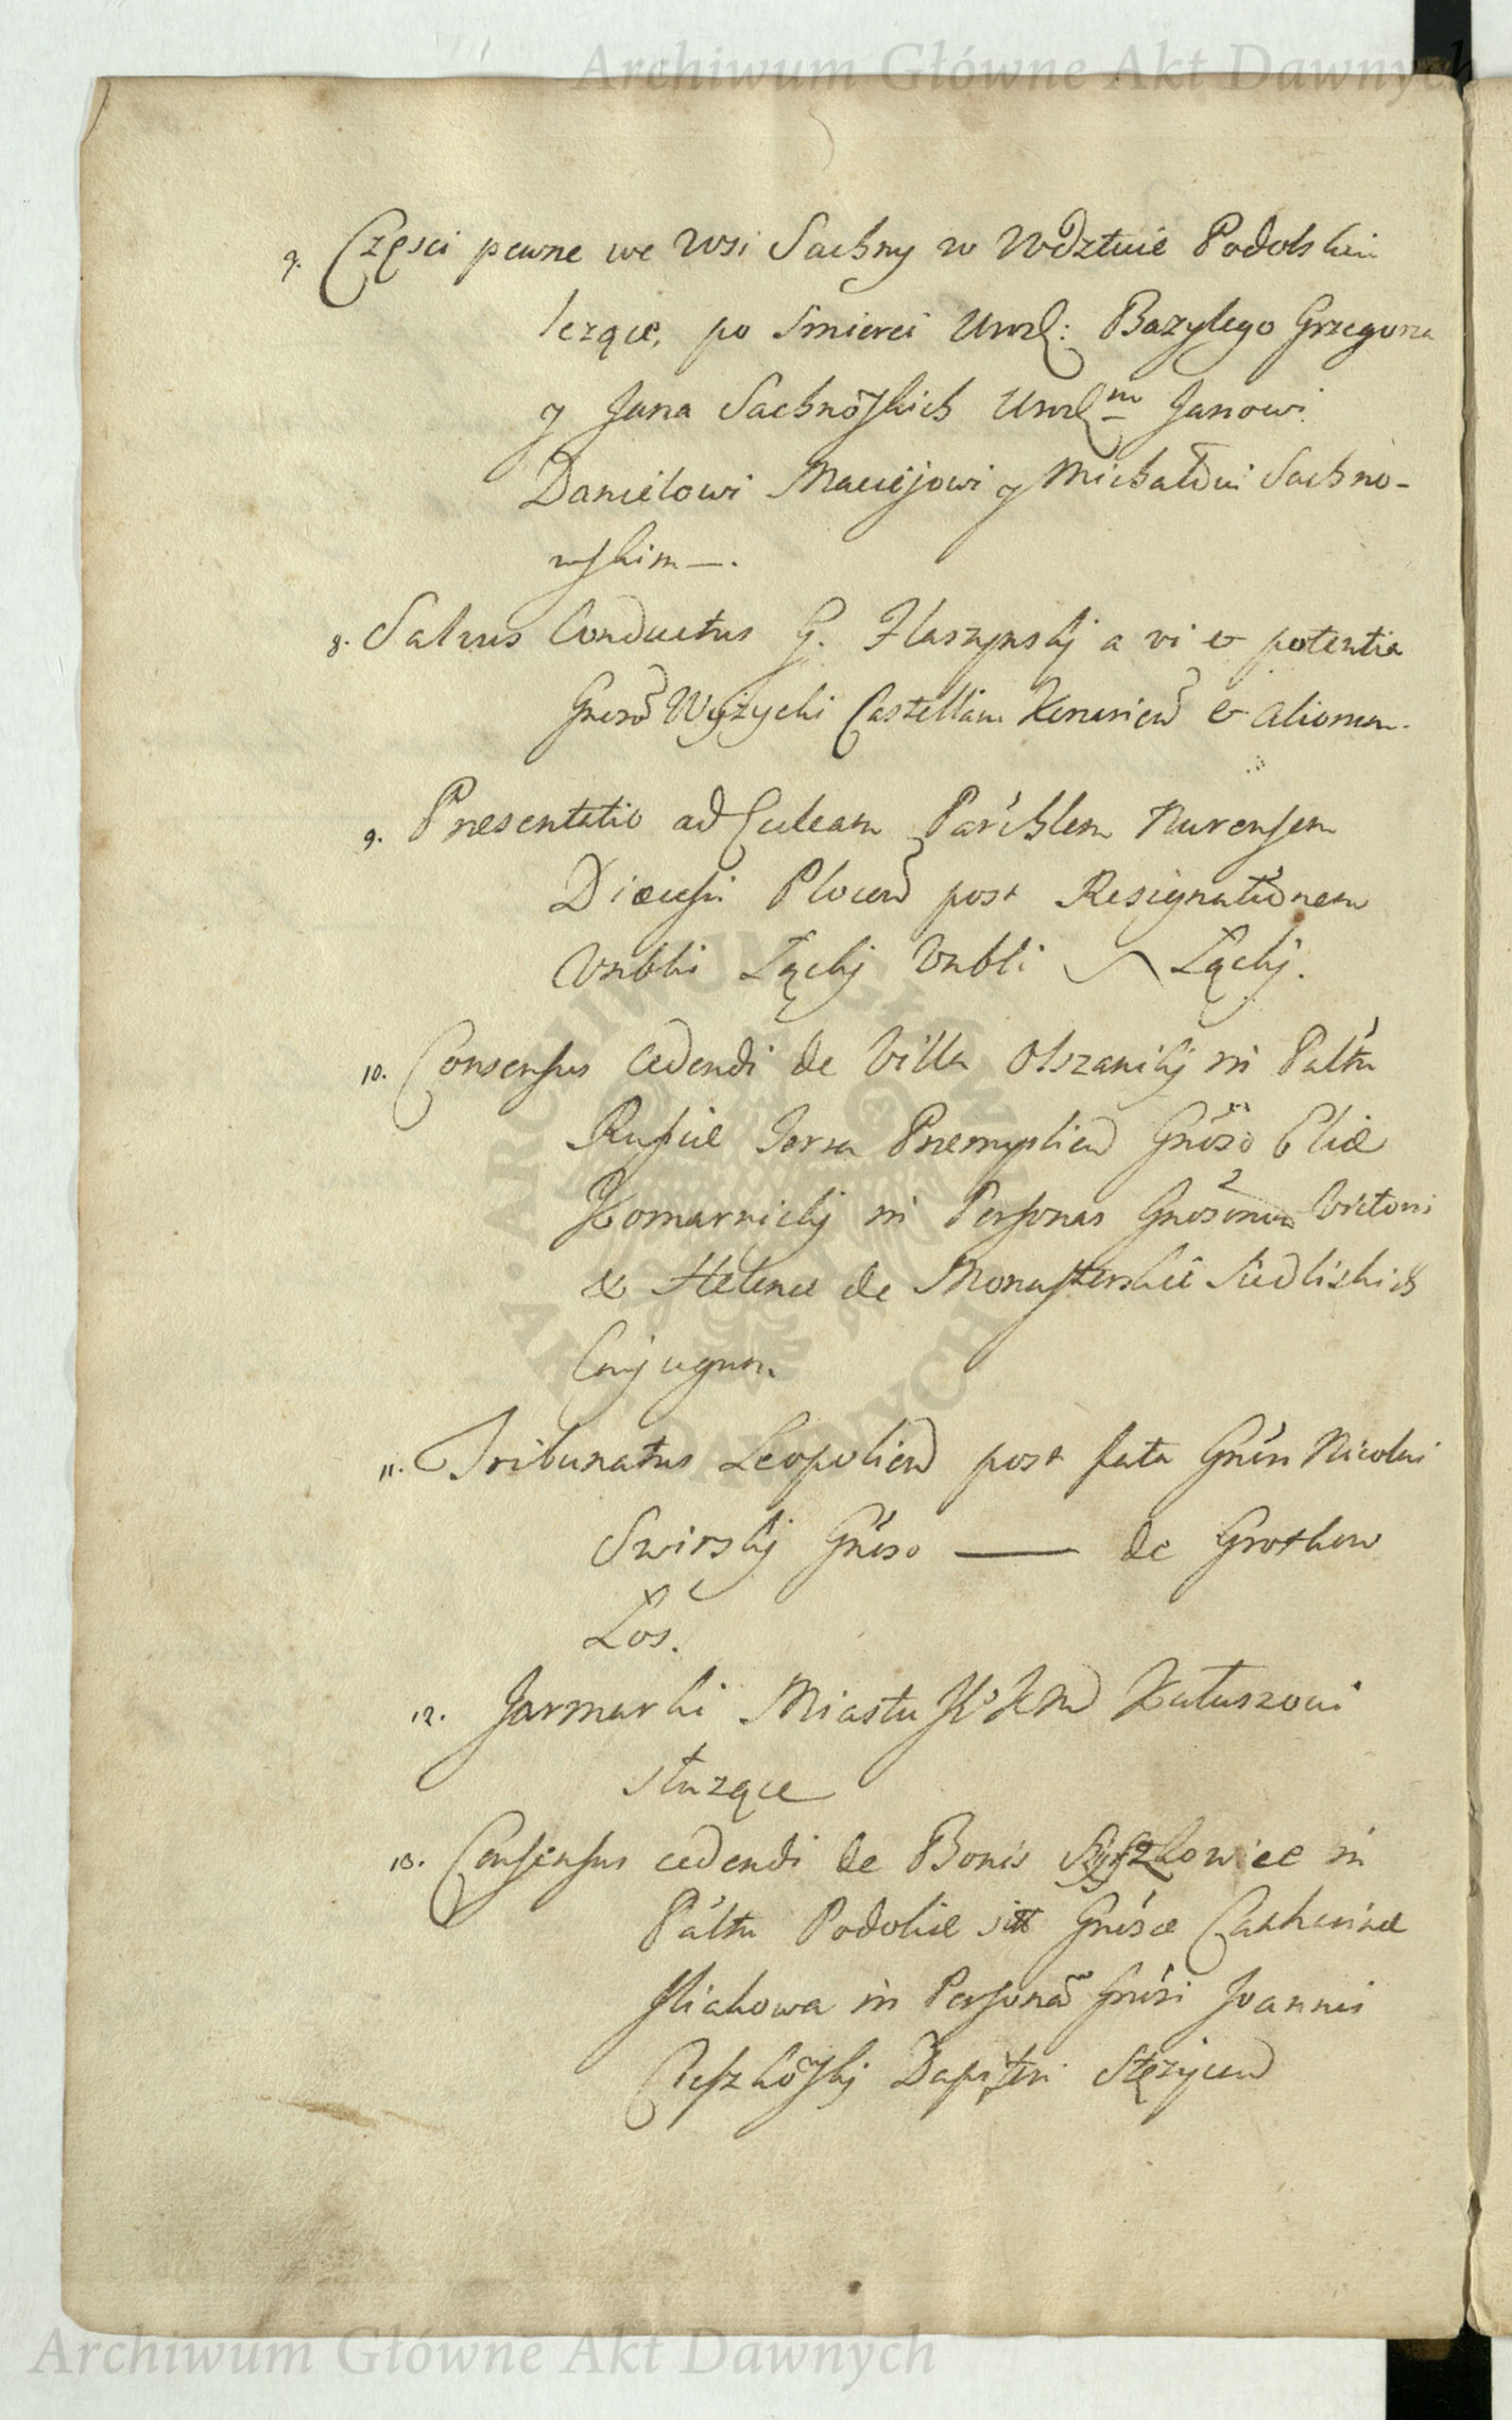 Archiwum Główne Akt Dawnych
7. Częsci pewne we Wsi Sachny w Wdztwie Podolskim
lezące, po smierci Urodz: Bazylego Grzegorza
y Jana Sachnõwskich Urodz<sup>m</sup> Janowi
Danielowi Maciejowi y Michałowi Sachno-
wskim —.
8. Salvus Conductus G. Haszynskj a vi & potentia
Gnrosõ Wyżycki Castellani &  aliorum.
9. Presentatio ad Eccleam Parchlem Nurensem
Diœcesis Plocen post Resignationem
Vnblis Łąckj Vnbli Łąckj.
10. Consensus cedendi de Villa Olszanikj in Paltu
Russiæ Terra Premyslien Gnoso Eliæ
Komarnickj in Personas Gnosorum Victoris
& Helenæ de Monasterskie Siedliskich
Conjugum.
11. Tribunatus Leopolien post fata Gnosi Nicolai
Swirskj Gnoso —— de Grotkow
Łoś.
12. Jarmarki Miastu JKMci Kałuszowi
służące
13. Consensus cedendi de Bonis in
Paltu Podoliæ sitt Gnosæ Catharinæ
Iliakowa in Personã Gnosi Joannis
Cieszkõwskj Dapiferi Stęzycen
Archiwum Główne Akt Dawnych